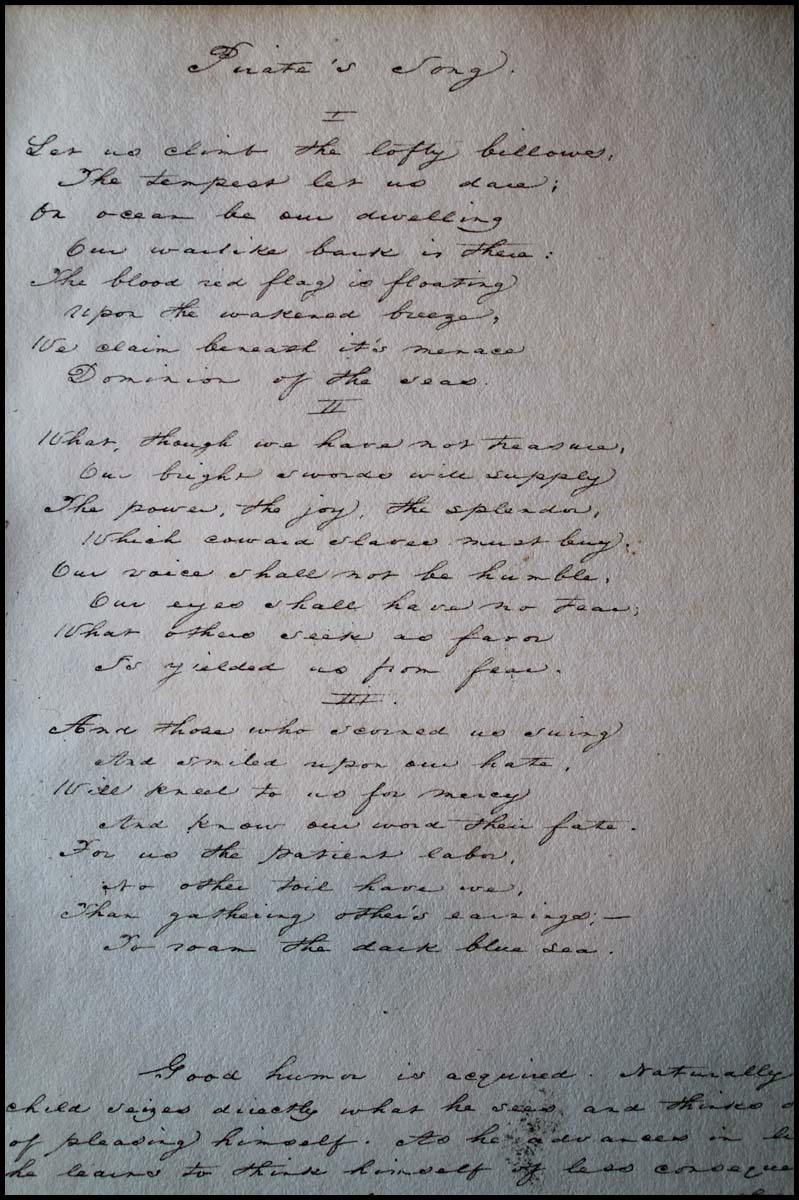 Pirate's Song.
I
Let us climb the lofty billows,
The tempest let us dare;
On ocean be our dwelling
Our warlike bark is there:
The blood red flag is floating
Upon the wakened breeze,
We claim beneath it's menace
Dominion of the seas.
II
What, though we have not treasure,
Our bright swords will supply
The power, the joy, the splendor,
Which coward slaves must buy.
Our voice shall not be humble,
Our eyes shall have no tear;
What others seek as favor
Is yielded us from fear.
III.
And those who scorned us suing
And smiled upon our hate,
Will kneel to us for mercy
And know our word their fate.
For us the patient labor,
No other toil have we,
Than gathering other's earnings;—
To roam the dark blue sea.
Good humor is acquired. Naturally
child seizes directly what he sees and thinks
of pleasing himself. As he advances in
he learns to think himself of less conseque